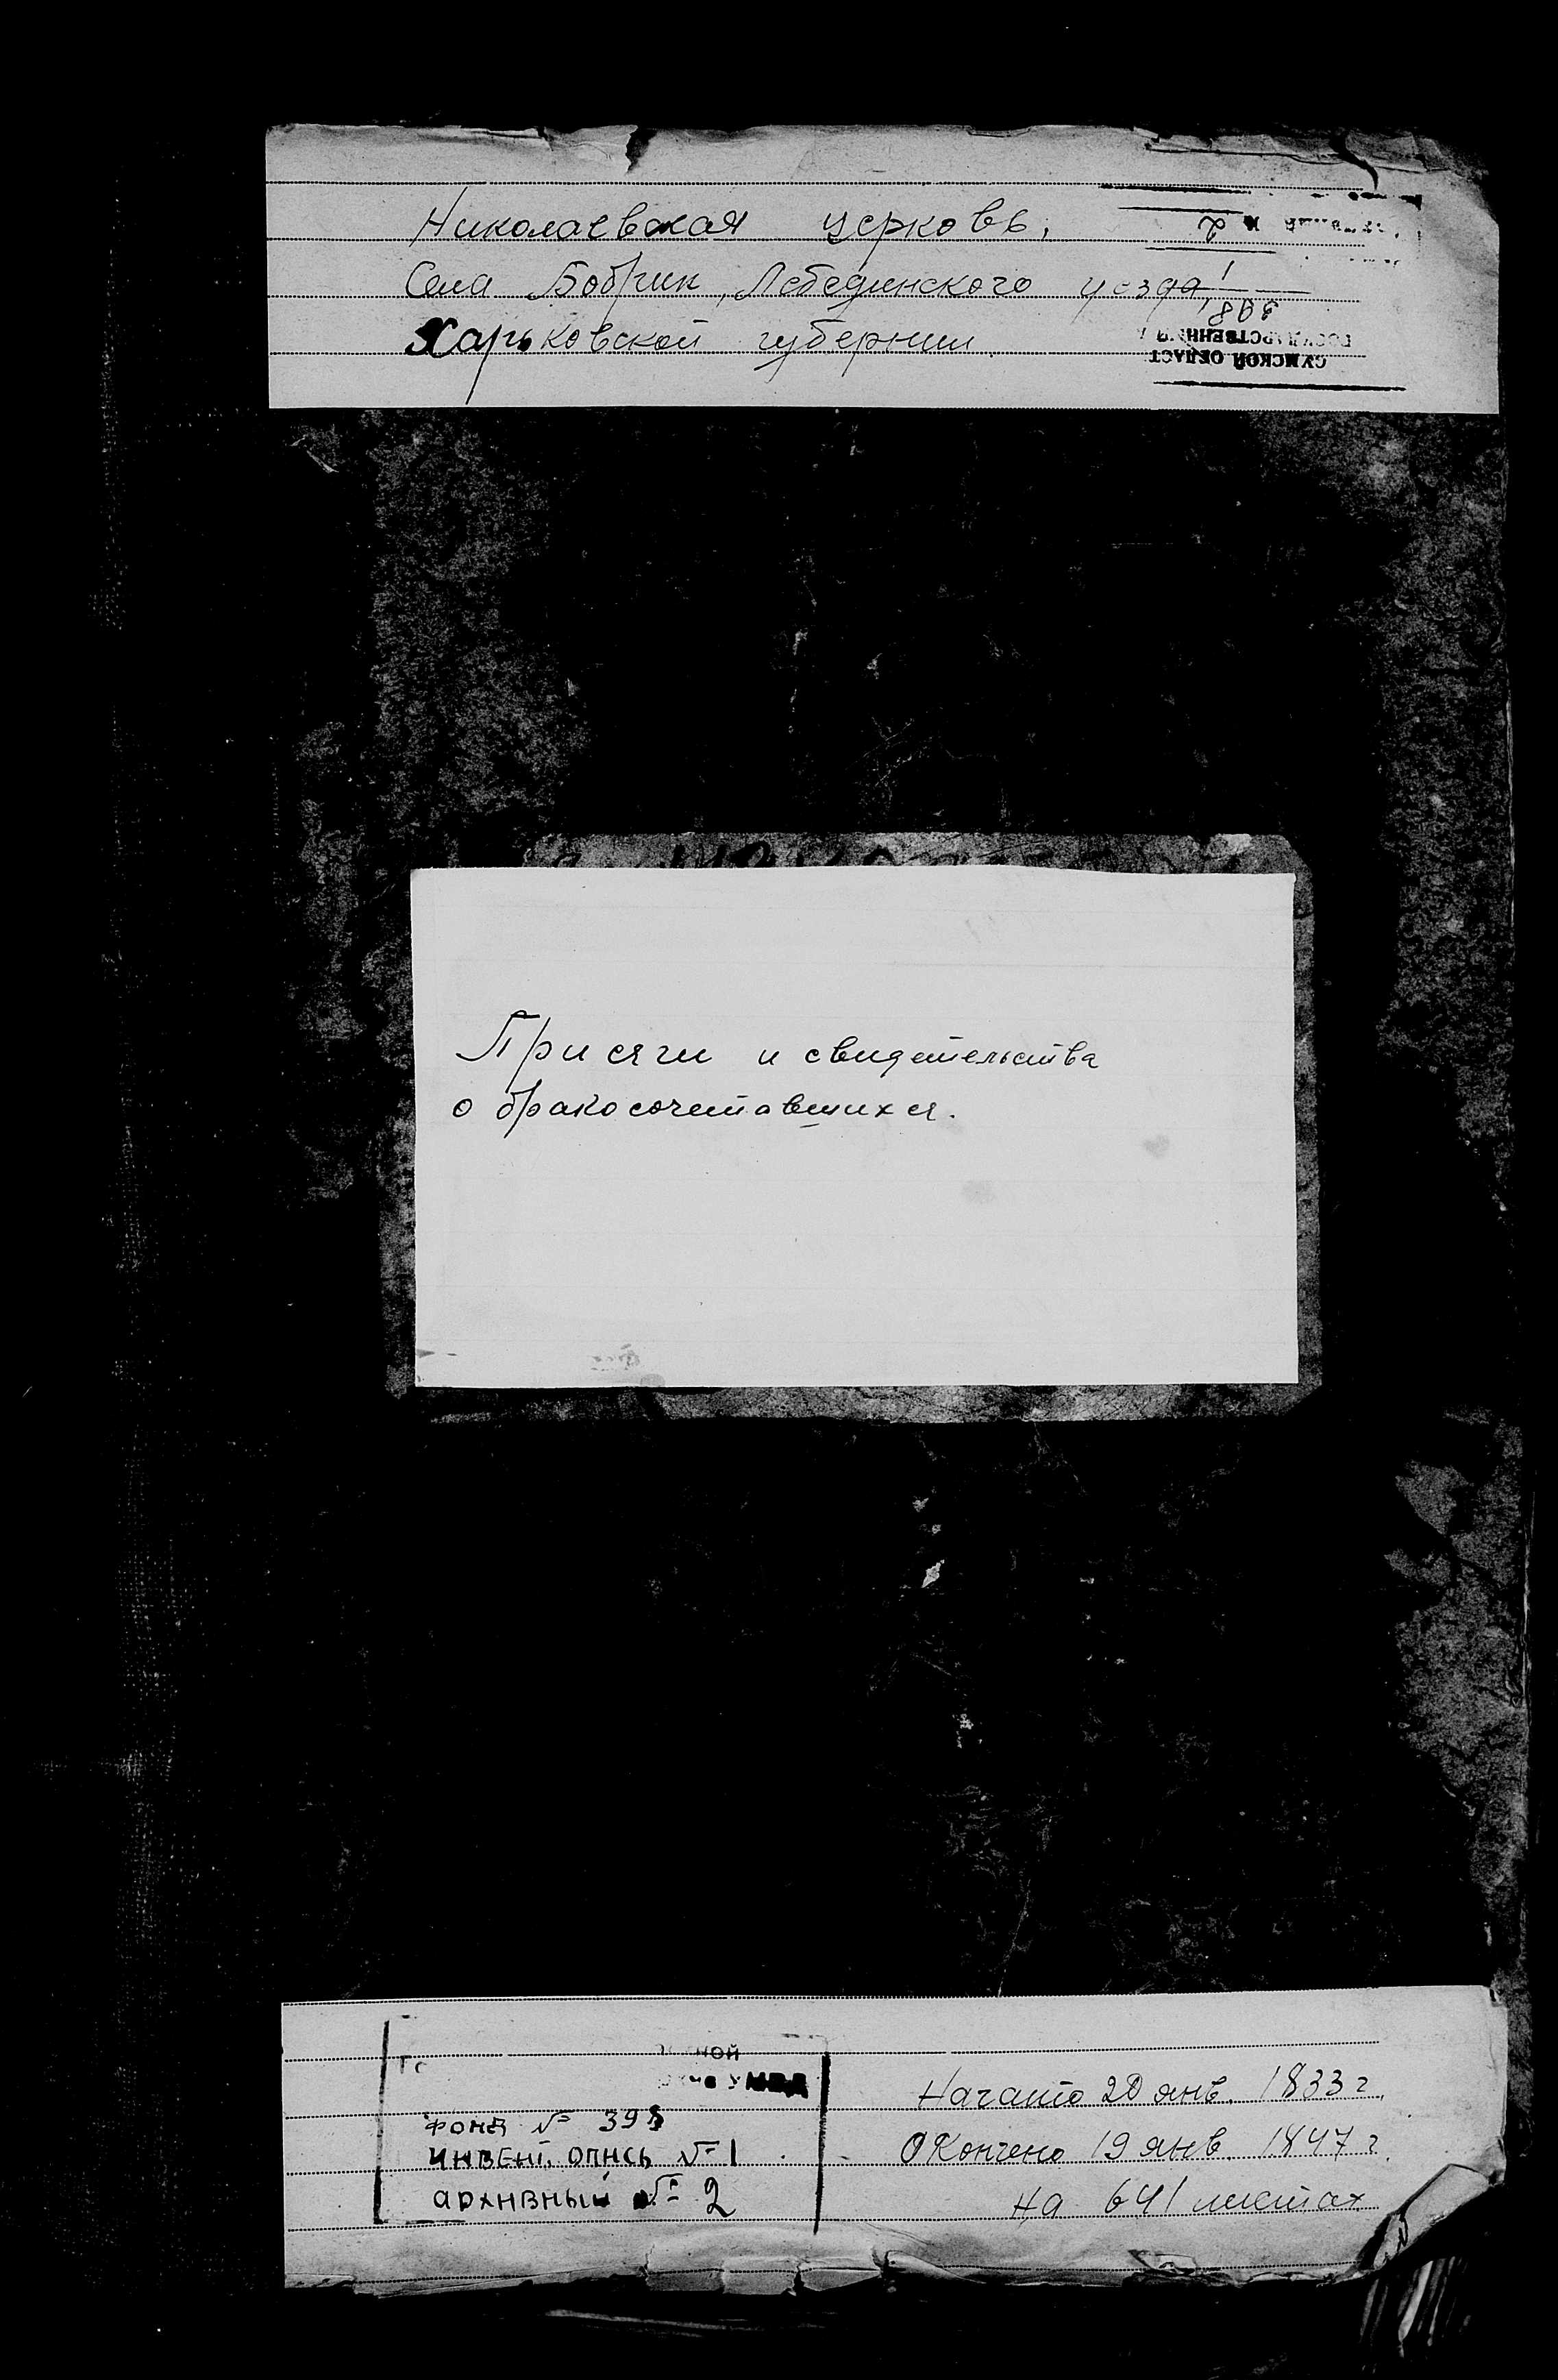 Николаевская церковь,
Села Бобрик, Лебединского уезда
Харьковской губернии
398
ГОСУДАРСТВЕННЫЙ
СУМСКОЙ ОБЛАСТ
Присяги и свидетельства
о бракосочетавшихся.
фонд № 398
инвент. опись № 1
архивный № 2
Начато 20 янв. 1833 г.
Окончено 19 янв. 1847 г
на 641 листах